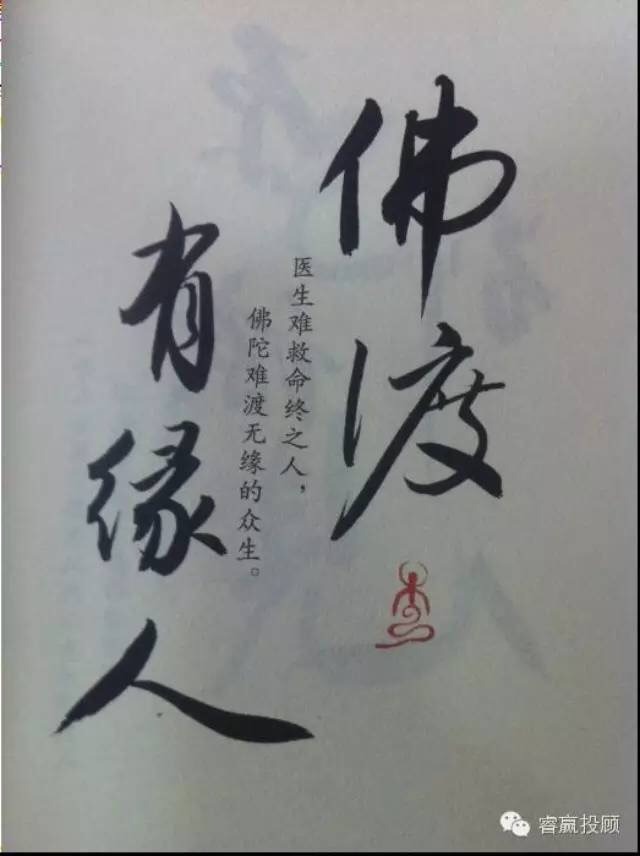 佛渡
有缘人
医生难救命终之人，
佛陀难渡无缘的众生。
睿赢投顾